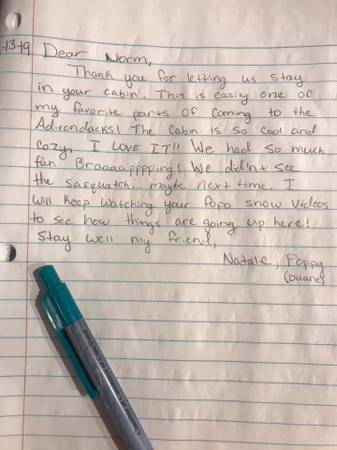 -13-19 Dear Norm,
Thank you for letting us stay
in your cabin. This is easily one of
my favorite parts of coming to the
Adirondacks! The Cabin is so cool and
cozy, I LOVE IT!! We had so much
fun Braaaapppping! We didn't see
the sasquatch... maybe next time. I
will keep watching your Popo snow videos
to see how things are going up here!
Stay well my friend,
Natalie, Poppy
(Duane)